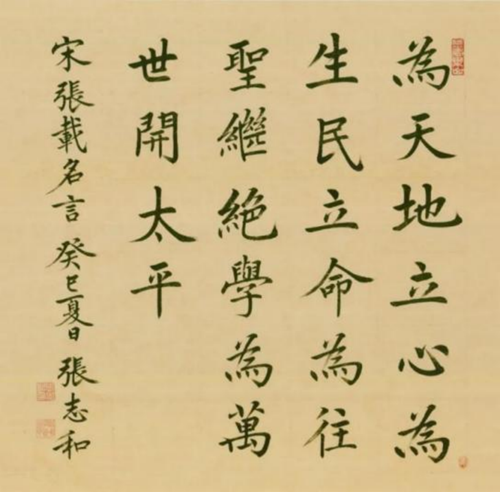 為天地立心為
生民立命為往
聖繼絕學為萬
世開太平
宋張載名言 癸巳夏日 張志和